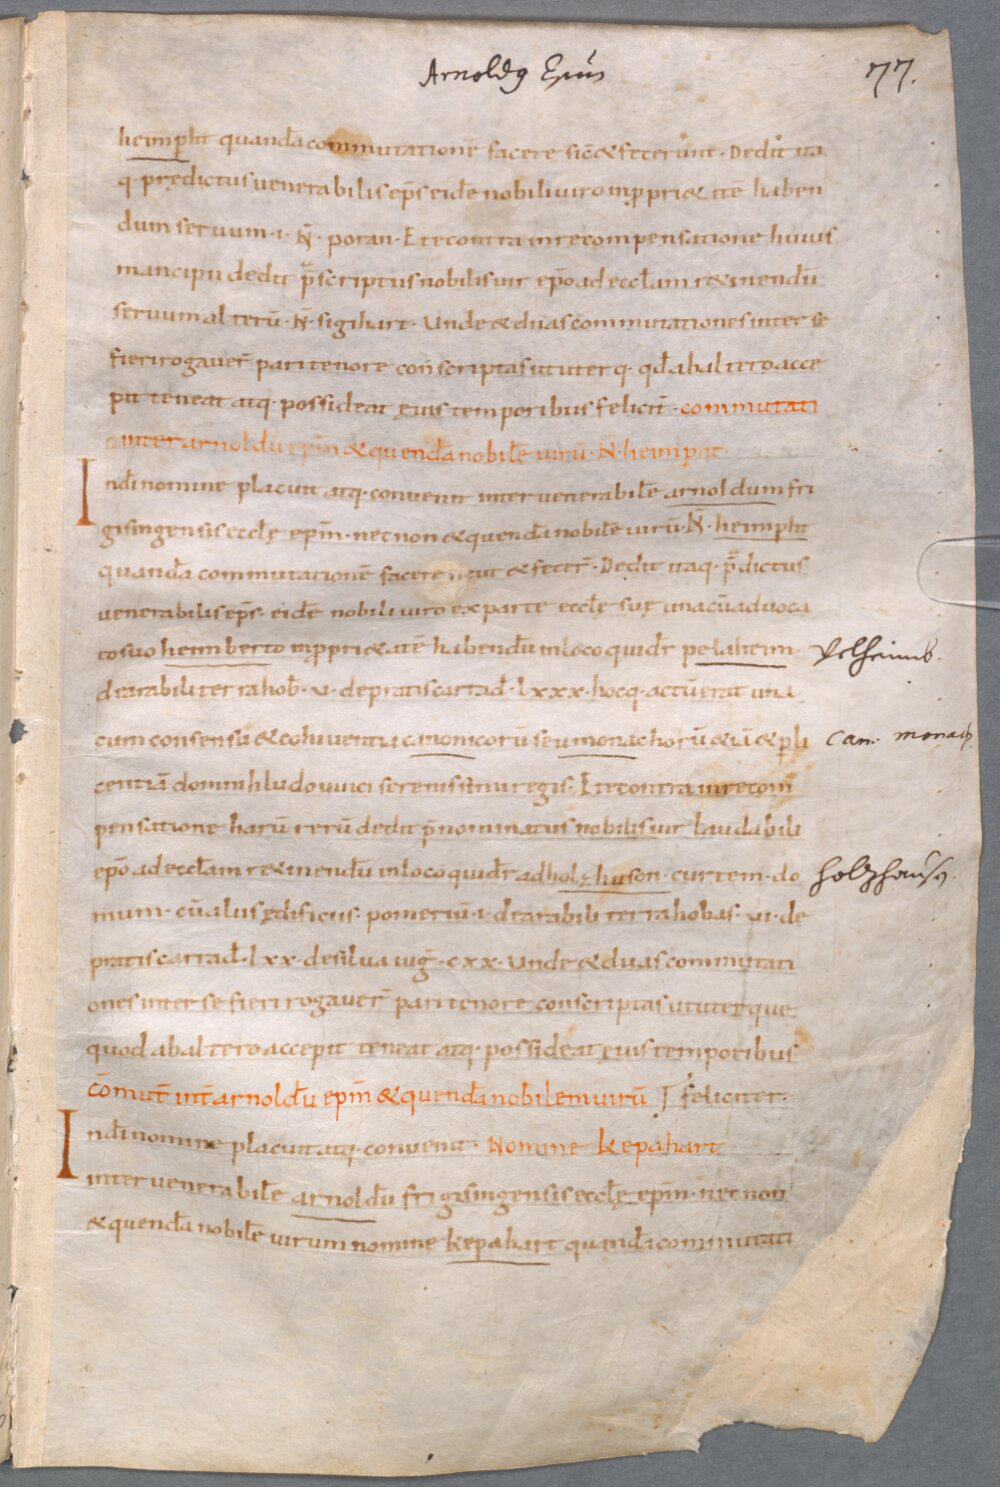 Arnoldꝯ Ep̄us
77.
heimp̄ht quandā commutationē facere sic̄ & fecerunt · Dedit ita
q · prędictus venerabilis ep̄s eidē nobili viro in p̱pri&atē haben
dum servum · i · N̄ · poran · Et econtra in recompensatione huius
mancipii dedit p̄scriptus nobilis vir ep̄o ad eccłam r&inendū
servum alterū · N̄ · sigihart · Unde & duas commutationes inter se
fieri rogaver̄ pari tenore conscriptas ut uterq · qd̄ ab altero acce
pit teneat atq · possideat ęvis temporibus felicit̄ · commutati
o inter arnoldū ep̄m & quendā nobilē virū · N̄ · heimp̱ht ·
In dī nomine placuit atq · convenit inter venerabilē arnoldum fri
gisingensis eccłę ep̄m · necnon & quendā nobilē virū · N̄ · heimp̱ht
quandā commutationē facere sicut & fecer̄ · Dedit itaq · p̄dictus
venerabilis ep̄s · eidē nobili viro ex parte eccłę suę una cū advoca
to suo heimberto in p̱pri&atē habendū in loco qui dr̄ pelaheim ·
Pelheimb.
de arabili terra hob̄ · vi · de pratis carrad̄ · lxxx · hocq · actū erat una
cum consensu & cohiventia canonicorū seu monachorū & iā & p̱ li
Can. monach.
centiā domni hludouuici serenissimi regis · Et econtra in recom
pensatione harū rerū dedit p̄nominatus nobilis vir laudabili
ep̄o ad eccłam r&inendū in loco qui dr̄ ad holzhuson · curtem · do
holzhausn.
mum · cū aliis ędificiis · pomeriū · i · de arabili terra hobas · vi · de
pratis carrad̄ · lxx · de silva iug̃ · cxx · Unde & duas commutati
ones inter se fieri rogaver̄ pari tenore conscriptas ut uterque
quod ab altero accepit teneat atq · possideat ęvis temporibus
feliciter ·
cōmut̄ int̄ arnoldū ep̄m & quendā nobilem virū
In dī nomine placuit atq · convenit · Nomine kepahart
inter venerabilē arnoldū frigisingensis eccłę ep̄m · necnon
& quendā nobilē virum nomine kepahart quandā commutati